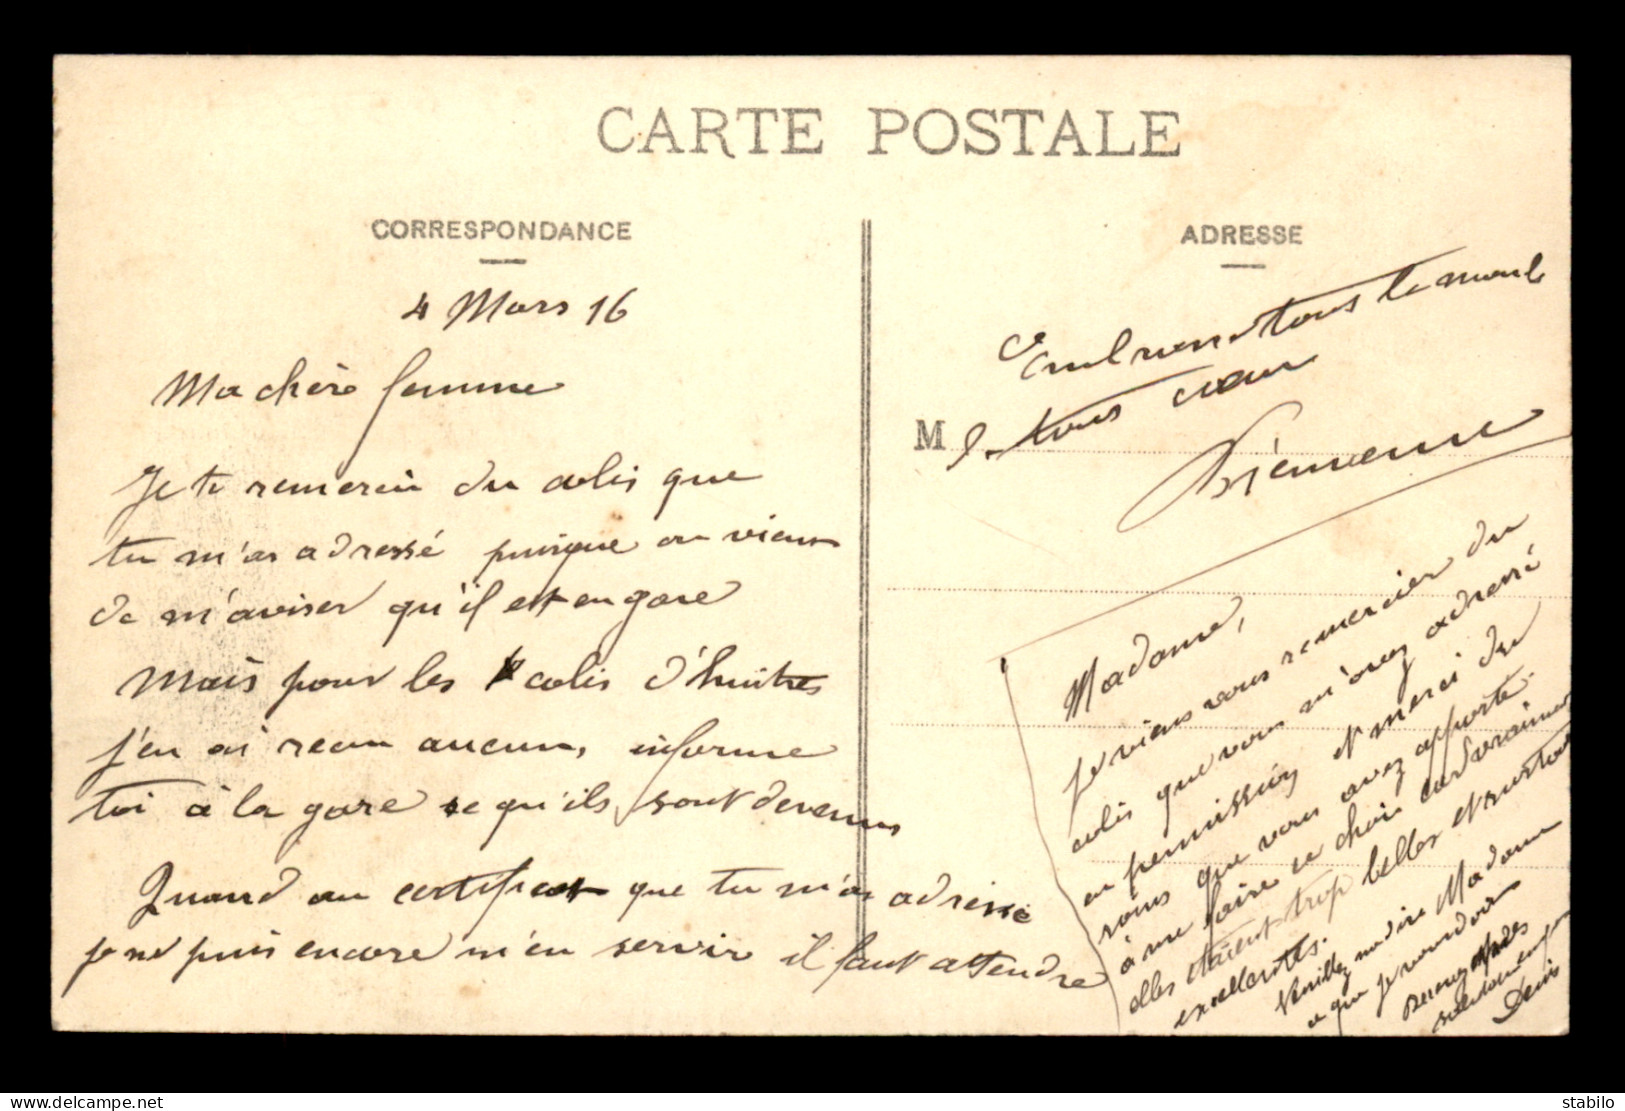 CARTE POSTALE
CORRESPONDANCE
ADRESSE
4 Mars 16
Ma chère femme
Je te remercie du colis que
tu m'as adressé puisque on vient
de m'aviser qu'il est en gare
Mais pour les colis d'huitres
j'en ai recu aucun, informe
toi à la gare ce qu'ils sont devenus
Quand au certificat que tu m'as adressé
je ne puis encore m'en servir il faut attendre
Embrasse tous le monde
M
de tous cœur
Madame,
Je viens vous remercier du
colis que vous m'avez adressé
en permission et merci du
soins que vous avez apporté
à me faire ce choix car vraiment
elles étaient trop belles et surtout
excellentes.
Veuillez me dire Madame
ce que je vous dois
Recevez mes
salutations
Denis
www.delcampe.net
stabilo